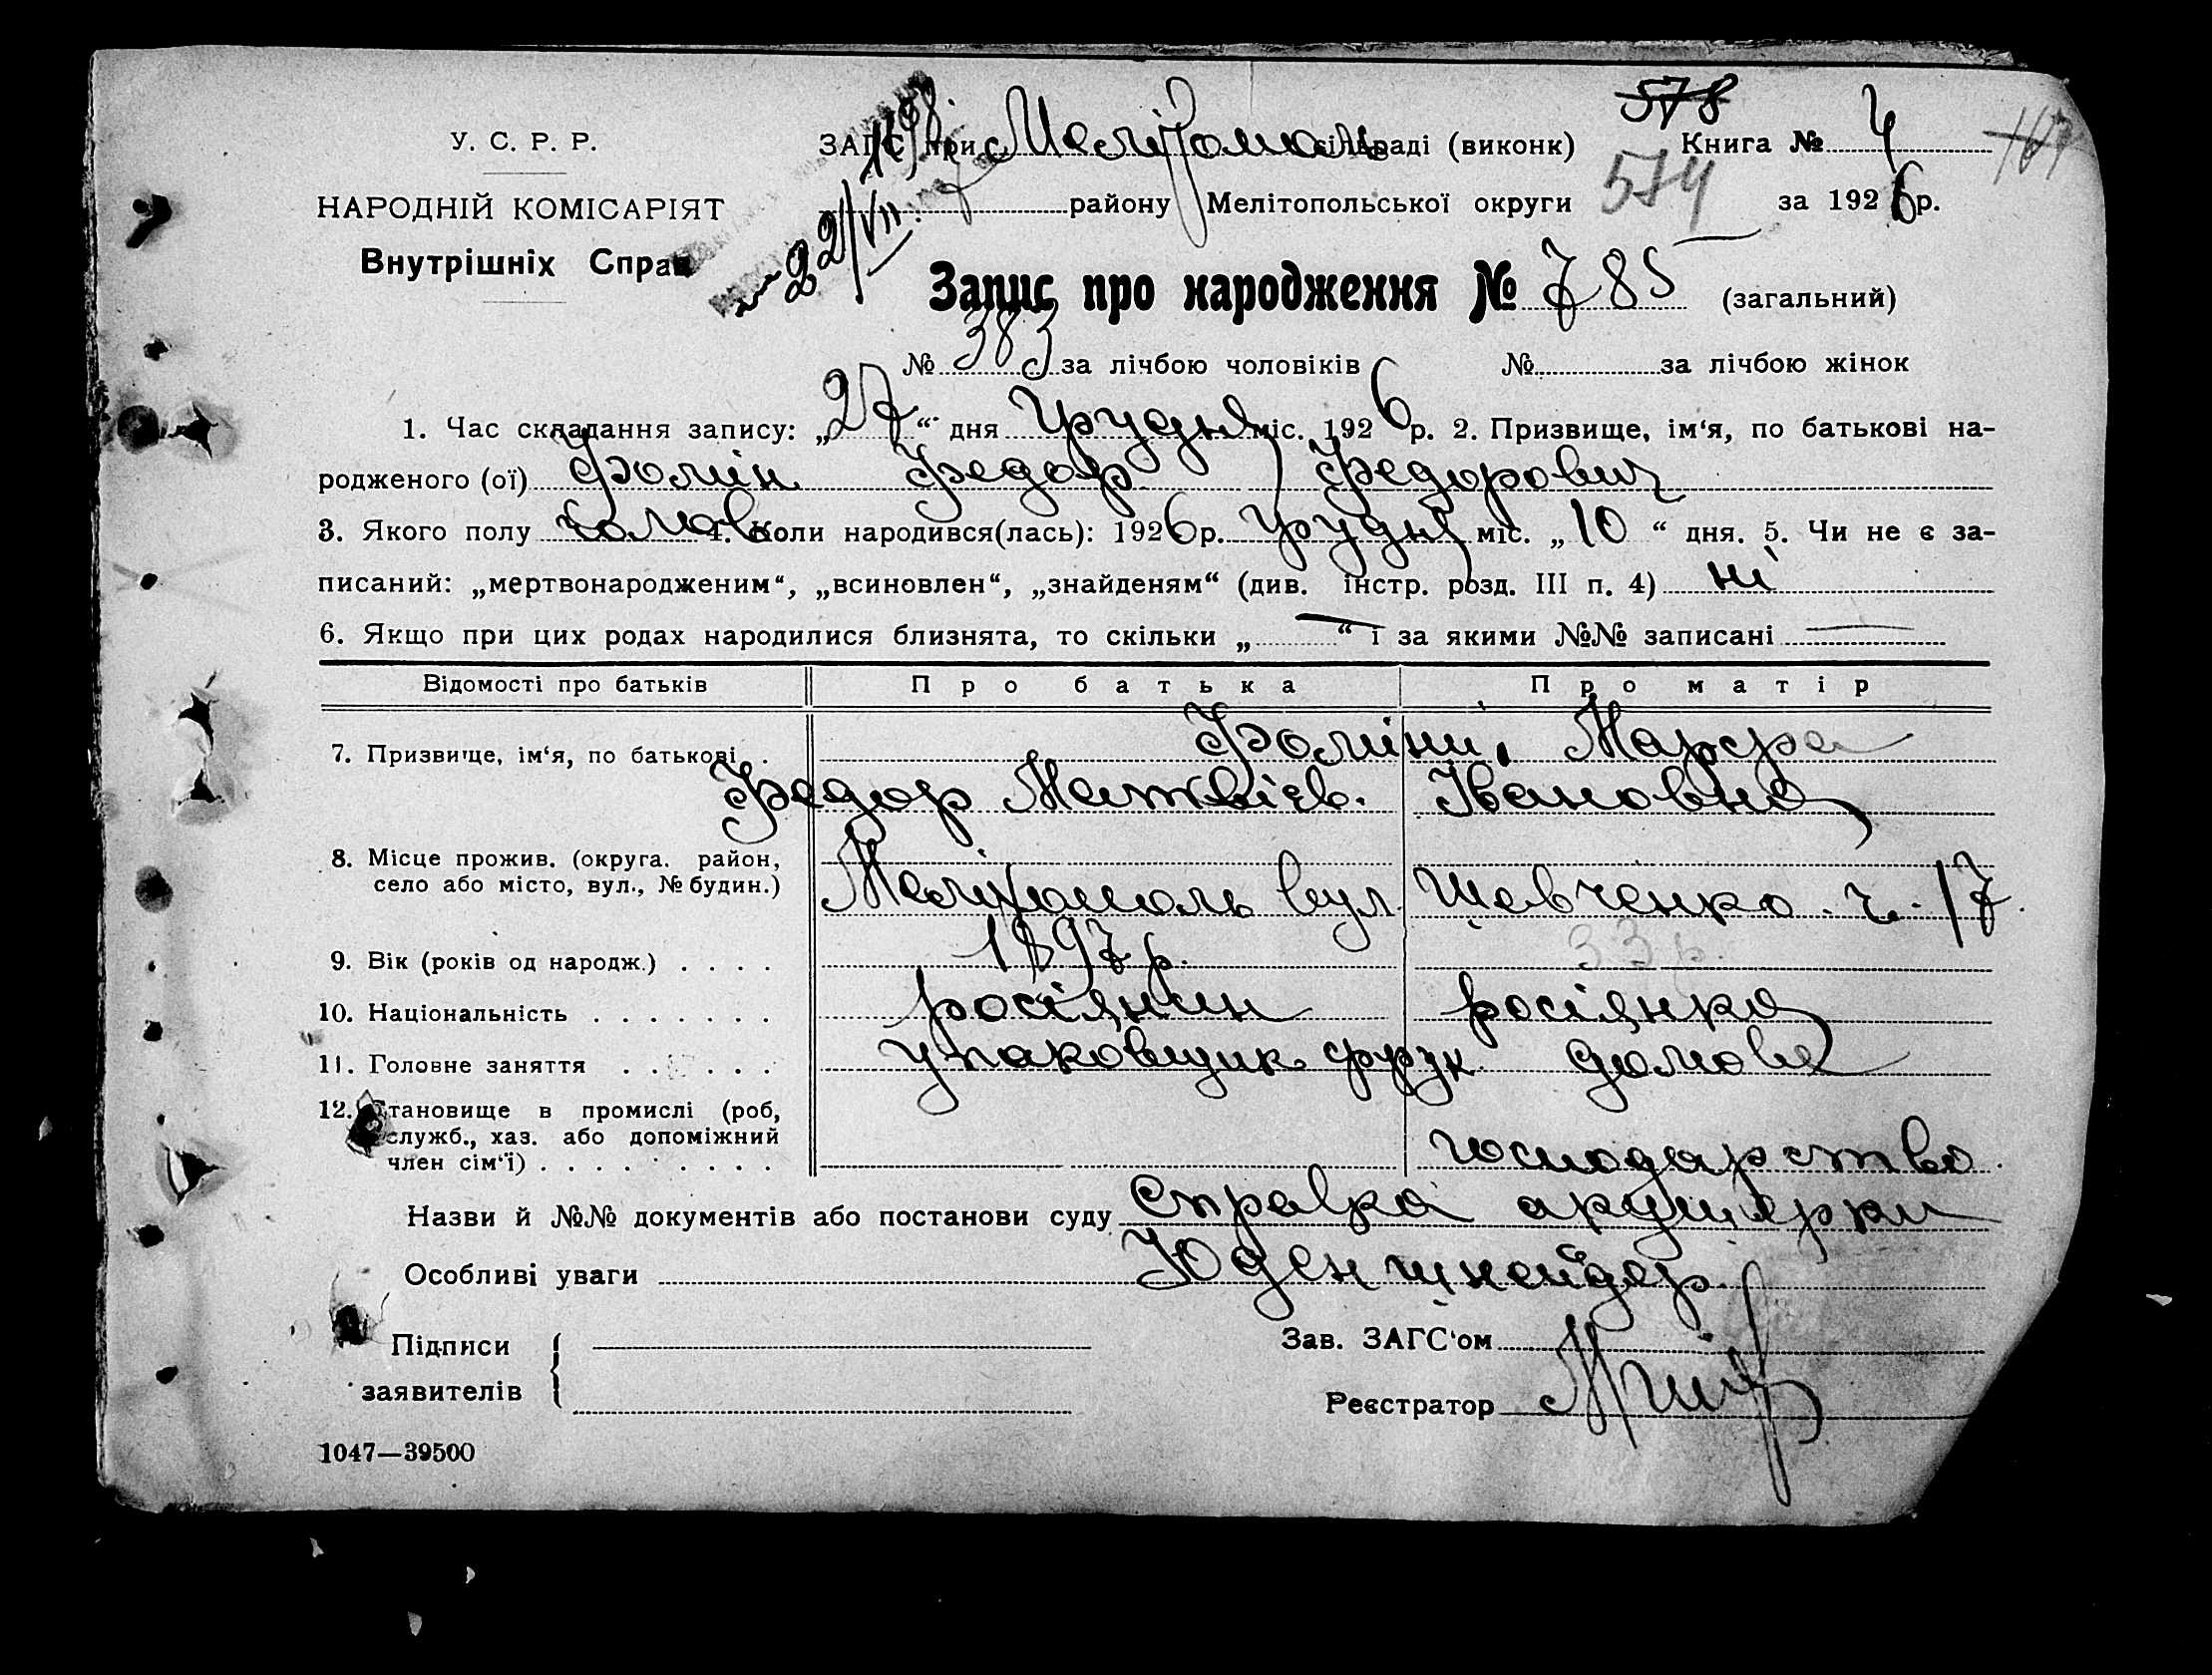 578
У. С. Р. Р.
ЗАГС при Мелітополь сільраді (виконк) Книга № 4
НАРОДНІЙ КОМІСАРІЯТ
району Мелітопольської округи 574 за 1926 р.
Внутрішніх Справ
22/VII
Запис про народження № 785 (загальний)
№ 383 за лічбою чоловіків № за лічбою жінок
1. Час складання запису: „27“ дня Грудня міс. 1926 р. 2. Призвище, ім‘я, по батькові на-
родженого (ої) Фомін Федор Федорович
3. Якого полу чолов. 4. Коли народився(лась): 1926 р. грудня міс. „10“ дня. 5. Чи не є за-
писаний: „мертвонародженим“, „всиновлен“, „знайденям“ (див. інстр. розд. III п. 4) ні
6. Якщо при цих родах народилися близнята, то скільки „—“ і за якими №№ записані —
Відомості про батьків Про батька Про матір
7. Призвище, ім‘я, по батькові . Фоміни, Марфа
Федор Матвієв. Івановна
8. Місце прожив. (округа, район,
село або місто, вул., № будин.) Мелітополь вул. Шевченко ч. 17.
9. Вік (років од народж.) . . . . 1897 р. 33 р.
10. Національність . . . . . . . росіянин росіянка
11. Головне заняття . . . . . . упаковщик фрук. домове
12. Становище в промислі (роб,
служб., хаз. або допоміжний
член сім‘ї) . . . . . . . . . господарство.
Назви й №№ документів або постанови суду Справка акушерки
Особливі уваги Юденшнейдер.
Підписи
Зав. ЗАГС‘ом
заявителів
Реєстратор
1047—39500